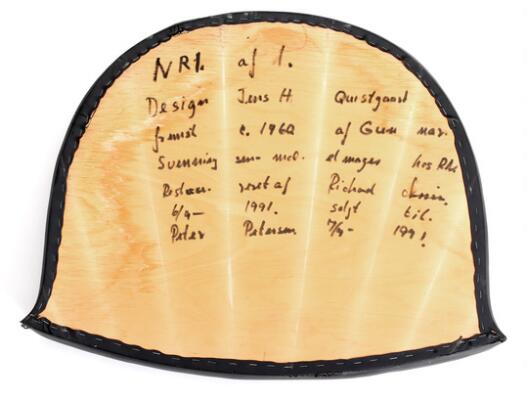 NR1. af 1.
Design Jens H. Quistgaard
fremst c. 1960 af Gun nar.
Svenning sen- mel. el mager hos
Restau. reret af Richard
6/9- 1991. solgt til.
Peter Petersen 7/9- 1991.